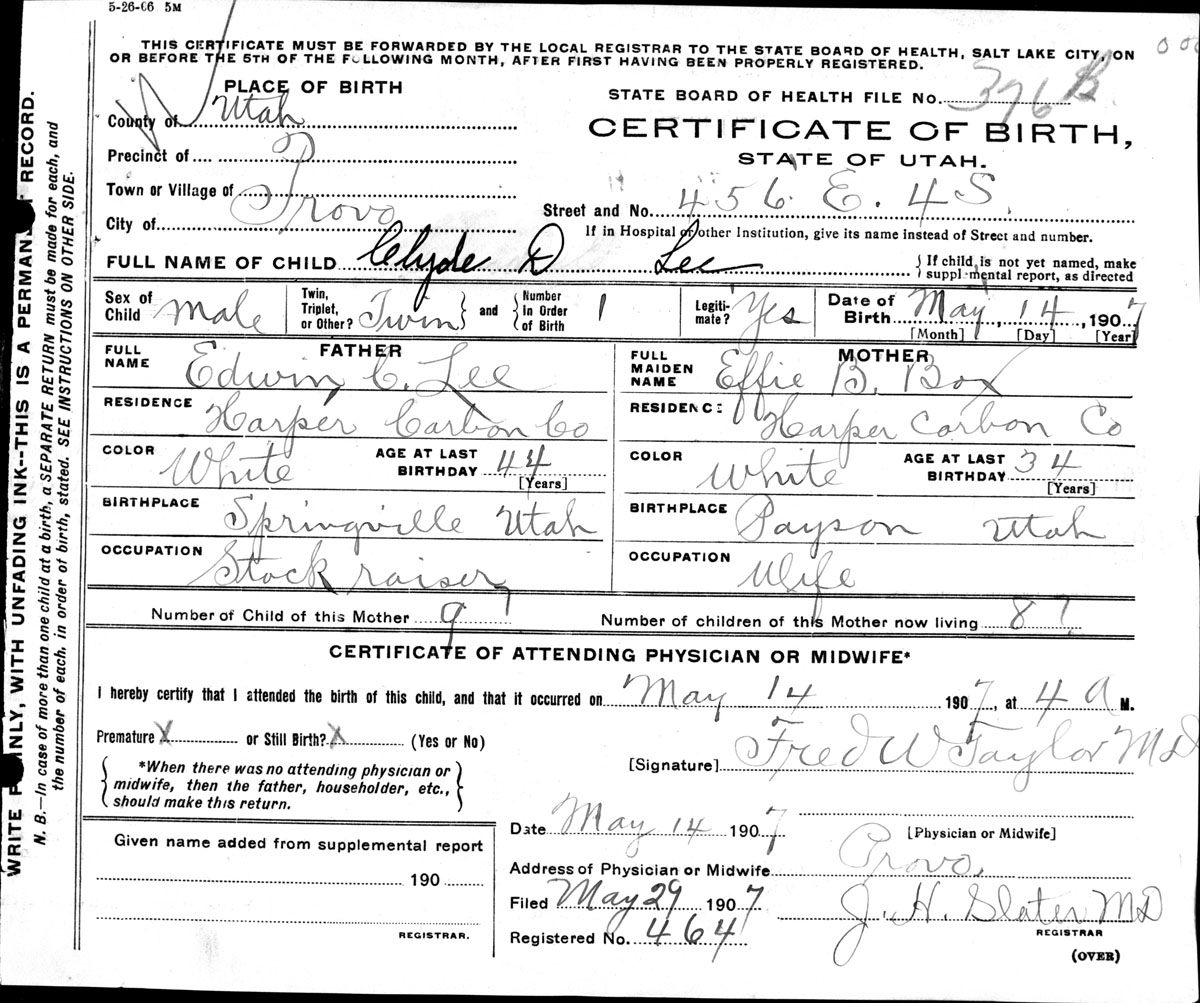 5-26-06 5M
THIS CERTIFICATE MUST BE FORWARDED BY THE LOCAL REGISTRAR TO THE STATE BOARD OF HEALTH, SALT LAKE CITY, ON
OR BEFORE THE 5TH OF THE FOLLOWING MONTH, AFTER FIRST HAVING BEEN PROPERLY REGISTERED.
PLACE OF BIRTH
County of Utah
Precinct of
Town or Village of
City of Provo
STATE BOARD OF HEALTH FILE No. 376 B
CERTIFICATE OF BIRTH,
STATE OF UTAH.
Street and No. 456 E. 4 S.
If in Hospital or other Institution, give its name instead of Street and number.
FULL NAME OF CHILD Clyde D Lee
If child is not yet named, make
supplemental report, as directed
Sex of Child Male
Twin, Triplet, or Other? Twin and Number In Order of Birth 1
Legiti-mate? Yes
Date of Birth May, 14, 1907
[Month] [Day] [Year]
FATHER
FULL NAME Edwin C. Lee
RESIDENCE Harper Carbon Co
COLOR White AGE AT LAST BIRTHDAY 44 [Years]
BIRTHPLACE Springville Utah
OCCUPATION Stock raiser
MOTHER
FULL MAIDEN NAME Effie B. Box
RESIDENCE Harper Carbon Co
COLOR White AGE AT LAST BIRTHDAY 34 [Years]
BIRTHPLACE Payson Utah
OCCUPATION Wife
Number of Child of this Mother 9
Number of children of this Mother now living 8
CERTIFICATE OF ATTENDING PHYSICIAN OR MIDWIFE*
I hereby certify that I attended the birth of this child, and that it occurred on May 14 1907, at 4 A M.
Premature X or Still Birth? X (Yes or No)
[Signature] Fred W Taylor MD
*When there was no attending physician or
midwife, then the father, householder, etc.,
should make this return.
Date May 14 1907
[Physician or Midwife]
Given name added from supplemental report
190
REGISTRAR.
Address of Physician or Midwife Provo,
Filed May 29 1907 J. H. Slater MD
REGISTRAR
Registered No. 464
(OVER)
WRITE PLAINLY, WITH UNFADING INK--THIS IS A PERMANENT RECORD.
N. B.—In case of more than one child at a birth, a SEPARATE RETURN must be made for each, and
the number of each, in order of birth, stated. SEE INSTRUCTIONS ON OTHER SIDE.